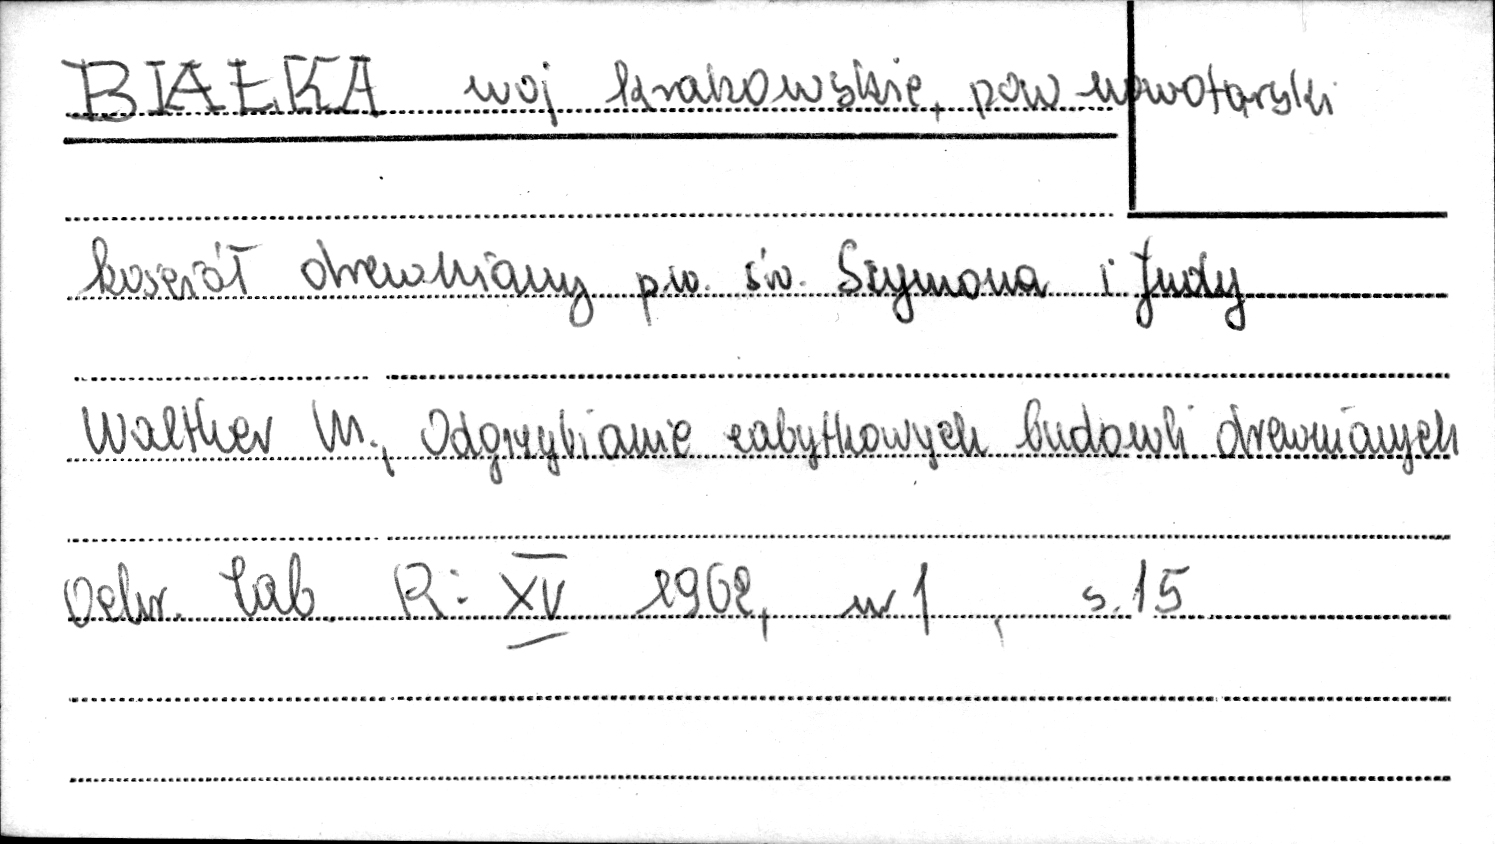 BIAŁKA woj krakowskie, pow nowotarski
kościół drewniany p.w. św. Szymona i Judy
Walther M., Odgrzybianie zabytkowych budowli drewnianych
Ochr. Zab. R: XV 1962, nr 1, s. 15